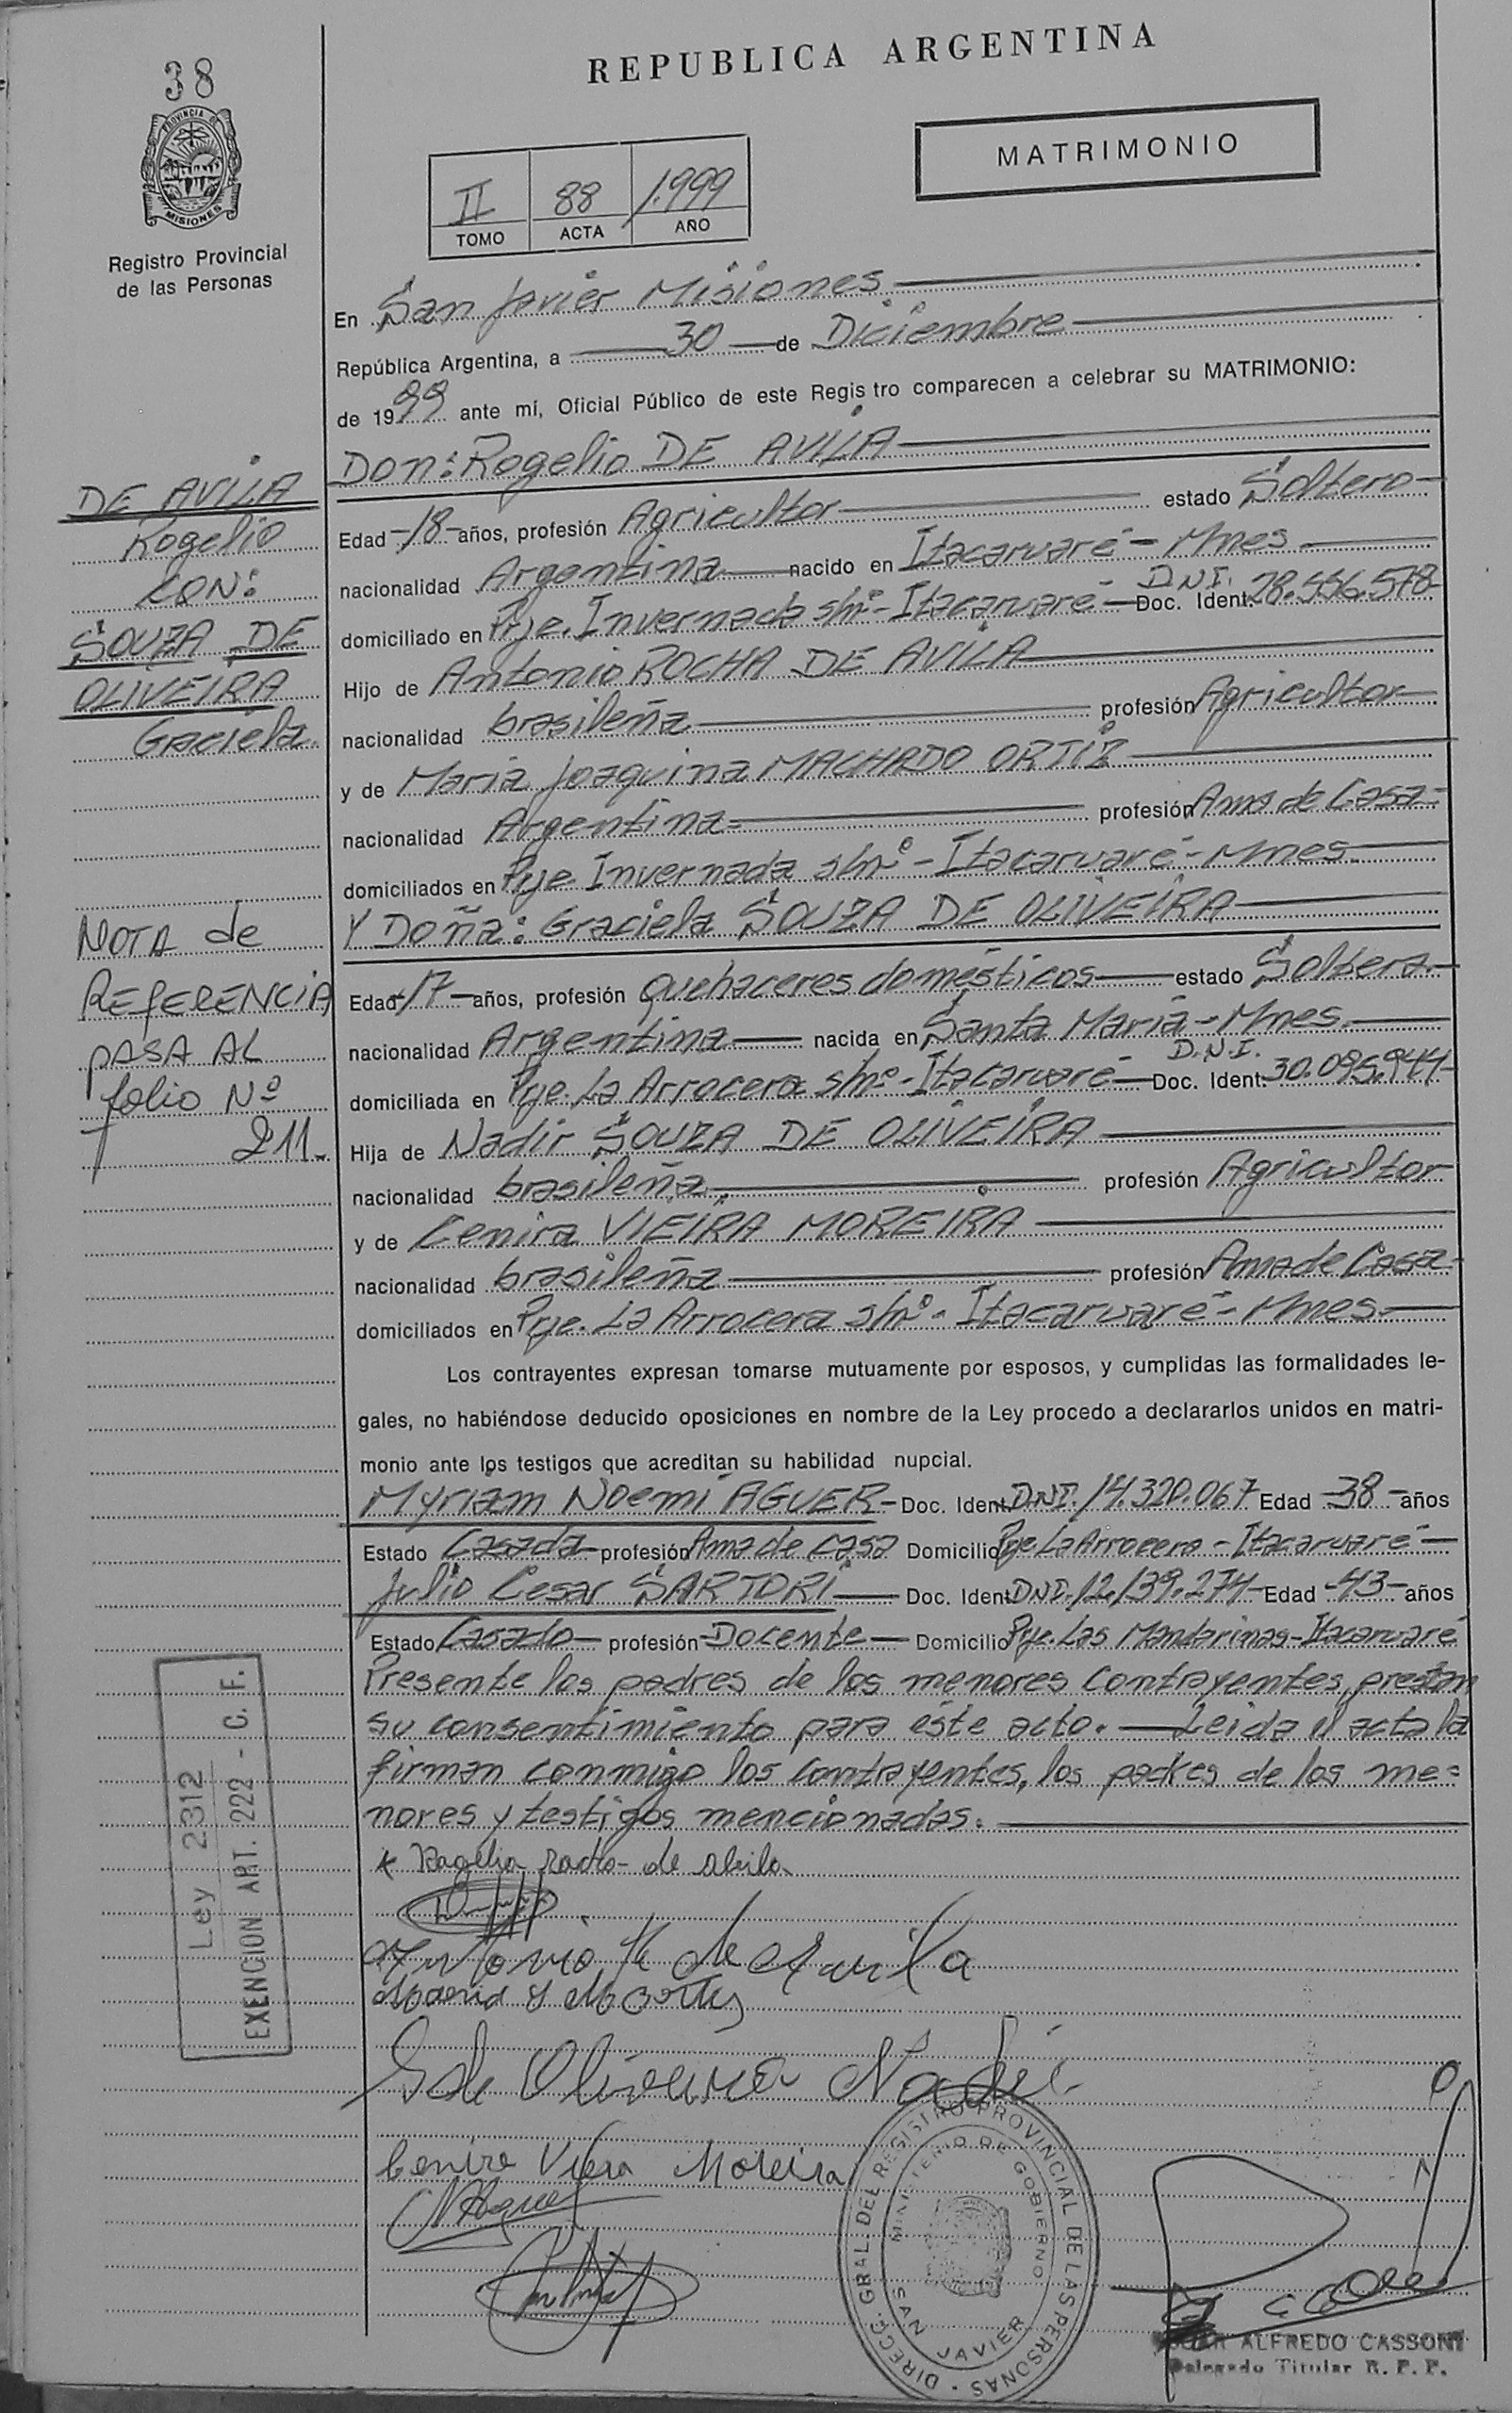 REPUBLICA ARGENTINA
38
PROVINCIA DE
MISIONES
Registro Provincial
de las Personas
MATRIMONIO
II 88 1.999
TOMO ACTA AÑO
En San Javier Misiones
República Argentina, a 30 de Diciembre
de 1999 ante mí, Oficial Público de este Regis tro comparecen a celebrar su MATRIMONIO:
DON: Rogelio DE AVILA
Edad -18- años, profesión Agricultor estado Soltero-
nacionalidad Argentina nacido en Itacaruaré - Mnes
domiciliado en Pje. Invernada s/nº - Itacaruaré - Doc. Ident. D.N.I. 28.556.578
Hijo de Antonio ROCHA DE AVILA
nacionalidad brasileña profesión Agricultor
y de Maria Joaquina MACHADO ORTIZ
nacionalidad Argentina profesión Ama de Casa-
domiciliados en Pje Invernada s/nº - Itacaruaré - Mnes.
Y DOÑA: Graciela SOUZA DE OLIVEIRA
Edad -17- años, profesión Quehaceres domésticos estado Soltera
nacionalidad Argentina nacida en Santa Maria - Mnes.
domiciliada en Pje. La Arrocera s/nº - Itacaruaré - Doc. Ident. D.N.I. 30.095.944
Hija de Nadir SOUZA DE OLIVEIRA
nacionalidad brasileña profesión Agricultor
y de Cenira VIEIRA MOREIRA
nacionalidad brasileña profesión Ama de Casa
domiciliados en Pje. La Arrocera s/nº - Itacaruaré - Mnes.
Los contrayentes expresan tomarse mutuamente por esposos, y cumplidas las formalidades le-
gales, no habiéndose deducido oposiciones en nombre de la Ley procedo a declararlos unidos en matri-
monio ante los testigos que acreditan su habilidad nupcial.
Myriam Noemi AGUER - Doc. Ident. D.N.I. 14.320.067 Edad -38- años
Estado Casada profesión Ama de casa Domicilio Pje La Arrocera - Itacaruaré
Julio Cesar SARTORI Doc. Ident. DNI. 12.139.274 Edad -43- años
Estado Casado profesión Docente Domicilio Pje. Las Mandarinas - Itacaruaré
Presente los padres de los menores contrayentes, prestan
su consentimiento para éste acto. Leida el acta la
firman conmigo los contrayentes, los padres de los me=
nores y testigos mencionados.
DE AVILA
Rogelio
CON:
SOUZA DE
OLIVEIRA
Graciela.
NOTA de
REFERENCIA
PASA AL
folio Nº
211.
Ley 2312
EXENCION ART. 222 - C. F.
de Avila
Antonio R de Avila
S de Oliveira Nadir
Cenira Viera Moreira
MAguer
DIRECC. GRAL. DEL REGISTRO PROVINCIAL DE LAS PERSONAS
MINISTERIO DE GOBIERNO
SAN JAVIER
ALFREDO CASSONI
Delegado Titular R. P. P.